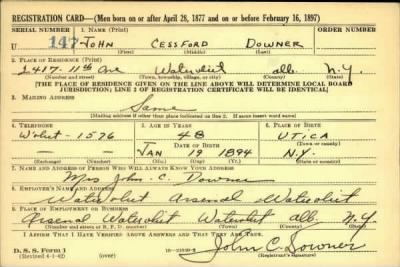 REGISTRATION CARD—(Men born on or after April 28, 1877 and on or before February 16, 1897)
SERIAL NUMBER 1. NAME (Print) ORDER NUMBER
U 147 JOHN CESSFORD DOWNER
(First) (Middle) (Last)
2. PLACE OF RESIDENCE (Print)
2417-11th Ave Watervliet alb. N.Y.
(Number and street) (Town, township, village, or city) (County) (State)
[THE PLACE OF RESIDENCE GIVEN ON THE LINE ABOVE WILL DETERMINE LOCAL BOARD
JURISDICTION; LINE 2 OF REGISTRATION CERTIFICATE WILL BE IDENTICAL]
3. MAILING ADDRESS
Same
[Mailing address if other than place indicated on line 2. If same insert word same]
4. TELEPHONE 5. AGE IN YEARS 6. PLACE OF BIRTH
W'vliet-1576 48 UTICA
DATE OF BIRTH (Town or county)
JAN 19 1894 N.Y.
(Exchange) (Number) (Mo.) (Day) (Yr.) (State or country)
7. NAME AND ADDRESS OF PERSON WHO WILL ALWAYS KNOW YOUR ADDRESS
Mrs John C. Downer
8. EMPLOYER'S NAME AND ADDRESS
Watervliet Arsenal Watervliet
9. PLACE OF EMPLOYMENT OR BUSINESS
Arsenal Watervliet Watervliet alb. N.Y.
(Number and street or R. F. D. number) (Town) (County) (State)
I AFFIRM THAT I HAVE VERIFIED ABOVE ANSWERS AND THAT THEY ARE TRUE.
D. S. S. Form 1
(Revised 4-1-42) (over) John C. Downer
(Registrant's signature)